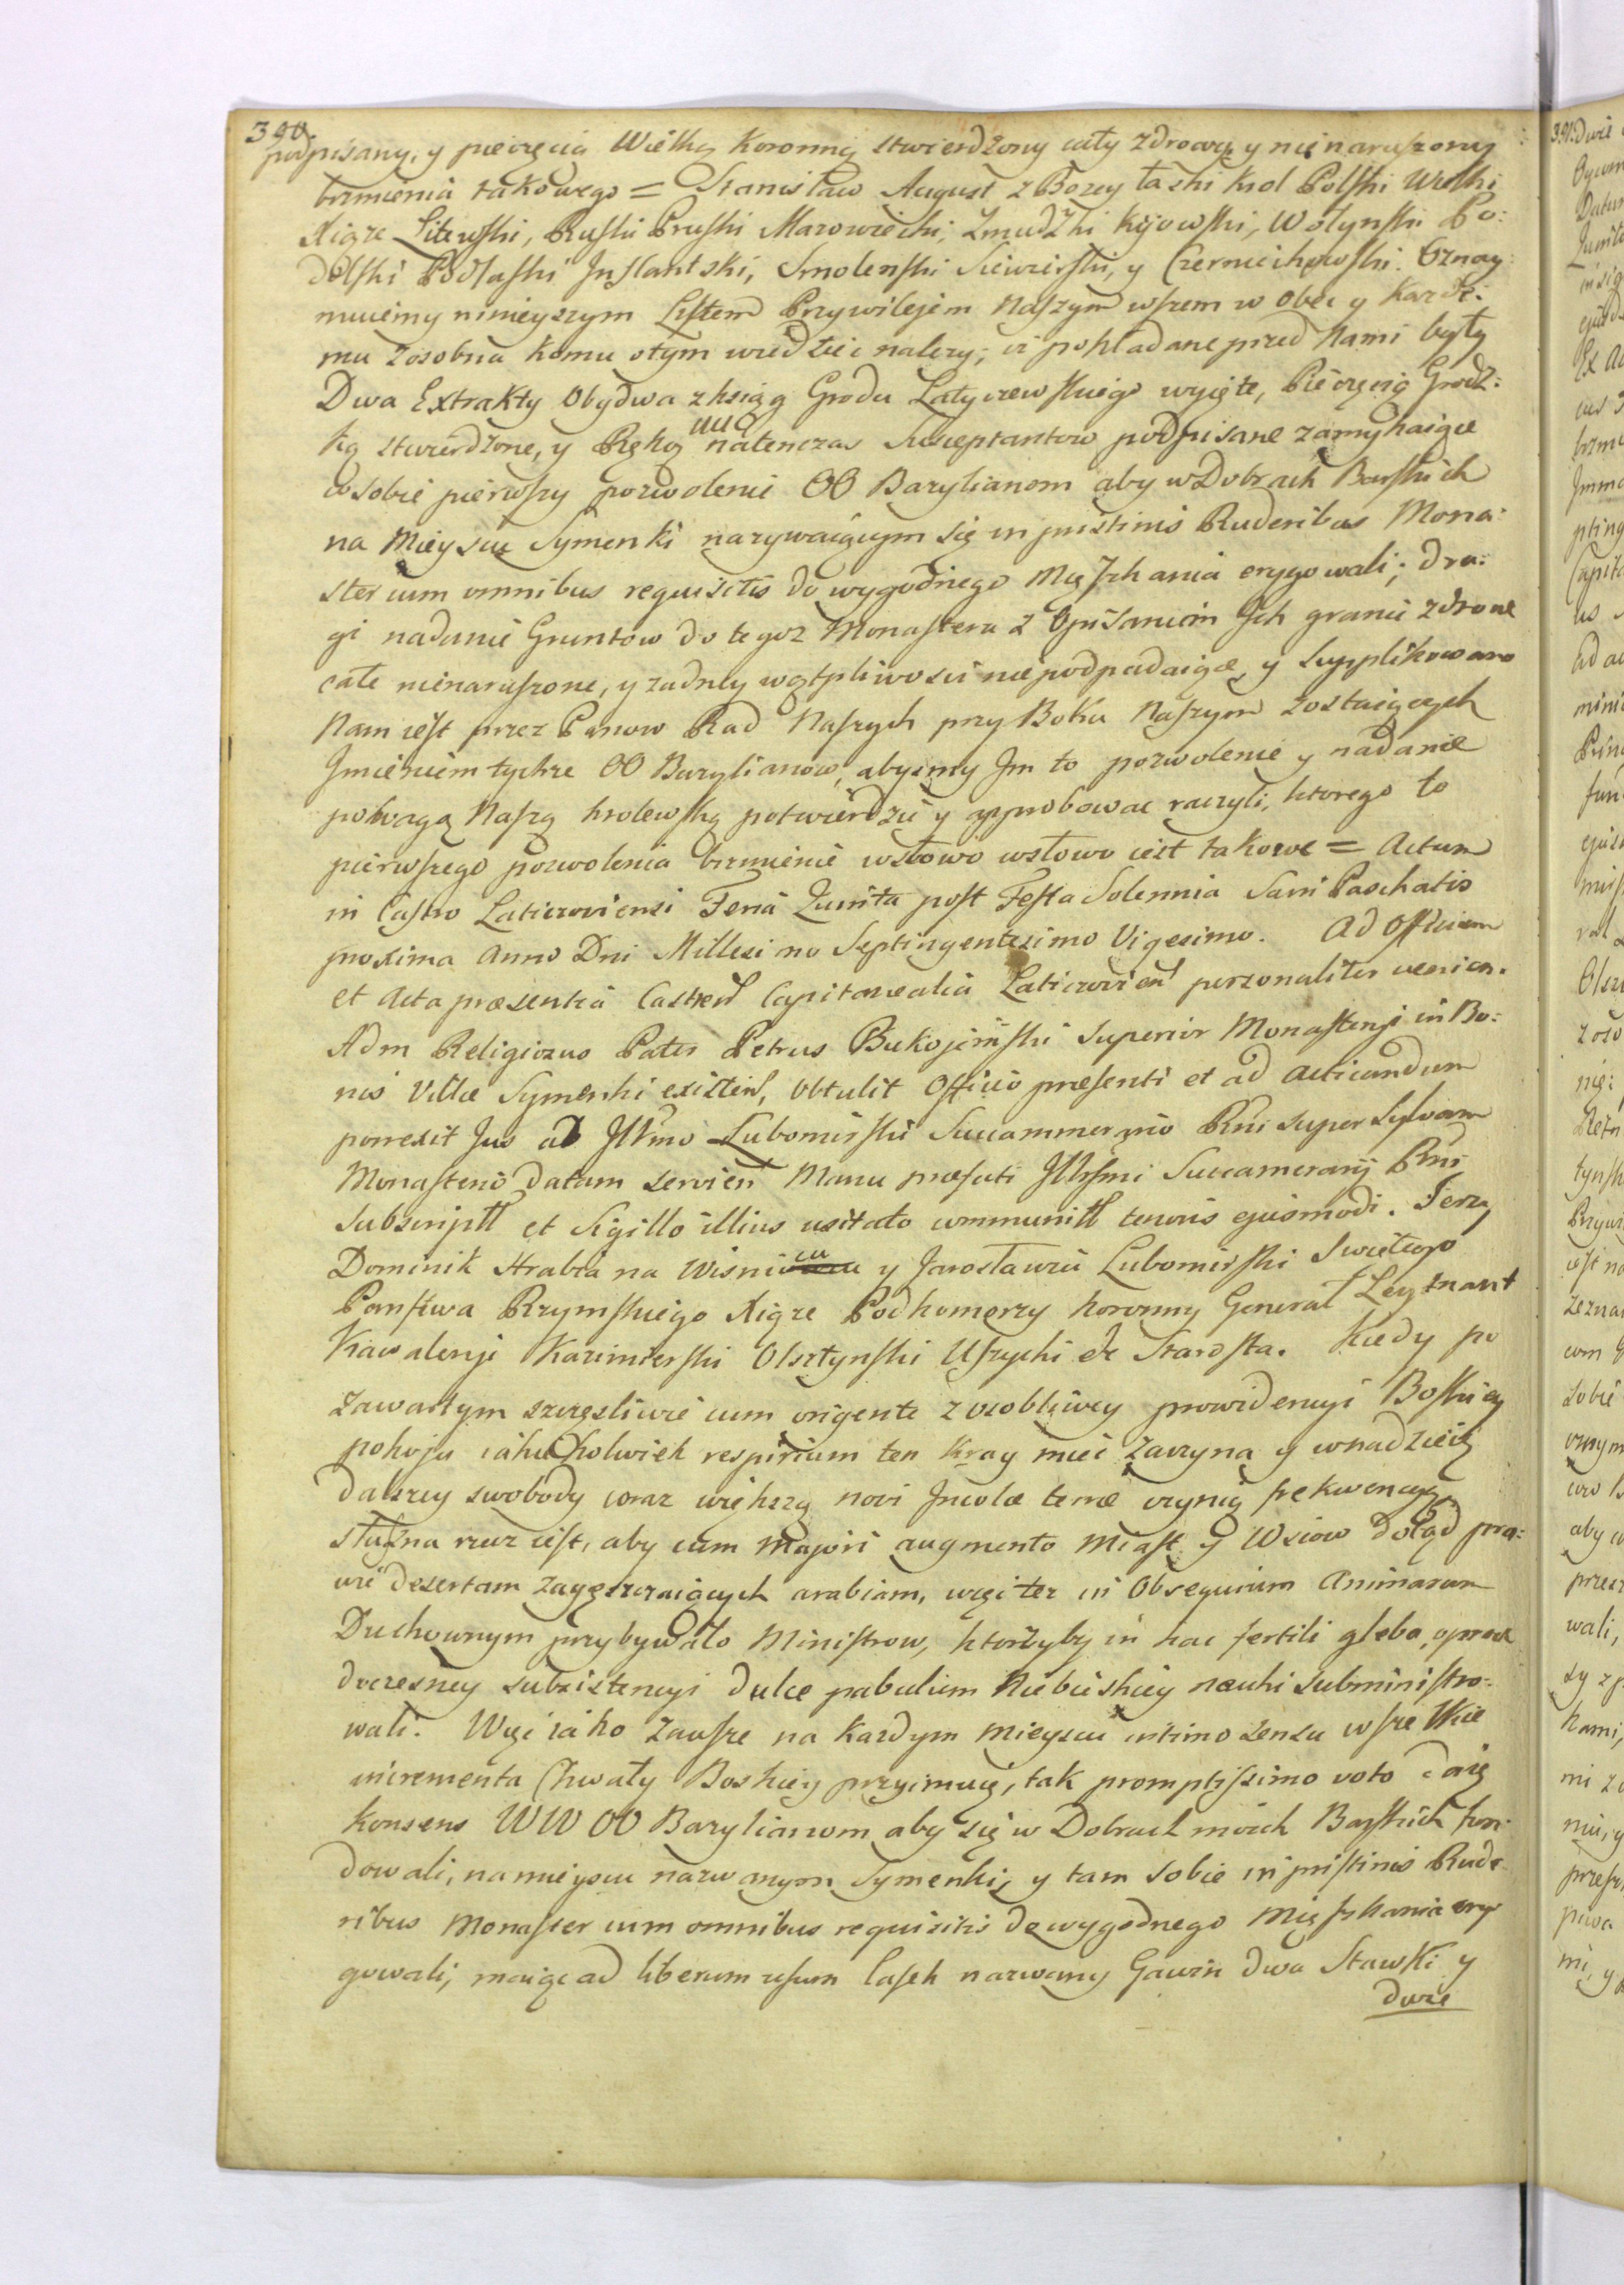 390.
podpisany, y pieczęcią Wielką Koronną stwierdzony cały zdrowy y nienaruszony
brzmienia takowego = Stanisław August z Bozey łaski Krol Polski Wielki
Xiąze Litewski, Ruski Pruski Mazowiecki, Zmudzki Kijowski, Wołynski Po:
dolski Podlaski Inflantski, Smolenski Siewierski, y Czerniechowski. Oznay:
muiemy ninieyszym Listem Przywilejem Naszym wszem w obec y Kazde:
mu zosobna komu otym wiedziec nalezy; iz pokładane przed Nami były
Dwa Extrakty Obydwa z ksiąg Grodu Latyczewskiego wyięte, Pieczęcią Grodz:
ką stwierdzone, y Ręką natenczas Susceptantow podpisane zamykaiące
w sobie pierwszy pozwolenie OO Bazylianom aby w Dobrach Barskich
na Mieyscu Symenki nazywaiącym się in pristinis Ruderibus Mona:
ster cum omnibus requisitis do wygodnego Mięszkania erygowali; dru:
gi nadanie Gruntow do tegoz Monasteru z Opisaniem Ich granic zdrowe
całe nienaruszone, y zadney wątpliwosci niepodpadaiące, y supplikowano
Nam iest przez Panow Rad Naszych przy Boku Naszym zostaiących
Imieniem tychze OO Bazylianow, abysmy Im to pozwolenie y nadanie
powagą Naszą krolewską potwierdzic y approbowac raczyli, ktorego to
pierwszego pozwolenia brzmienie wsłowo wsłowo iest takowe = Actum
in Castro Laticzoviensi Feria Quinta post Festa Solennia Sacri Paschatis
proxima Anno Dni Millesimo Septingentesimo Vigesimo. Ad Officium
et Acta præsentia Castren Capitanealia Laticzovien personaliter venien.
Adm Religiosus Pater Petrus Bukojemski Superior Monasterji in Bo:
nis Villæ Symenki existen, obtulit Officio præsenti et ad acticandum
porrexit Jus ab Illmo Lubomirski Succammerario Rni super Sylvam
Monasterio datam servien Manu præfati Illrsmi Succamerarij Rni
subscriptt et Sigillo illius usitato communitt tenoris ejusmodi. Jerzy
Dominik Hrabia na Wisniczu y Jarosławiu Lubomirski Swiętego
Panstwa Rzymskiego Xiąze Podkomorzy koronny General Leytnant
Kawaleryi Kazimierski Olsztynski Uszycki &c Starosta. Kiedy po
zawartym szczęsliwie cum origente z osobliwey prowidencyi Boskiey
pokoju iakieżkolwiek respirium ten kray miec zaczyna y wnadzieię
dalszey swobody coraz większą novi Incolæ terræ czynią frekwencyą,
słuszna rzecz iest, aby cum Majori augmento Miast y Wsiow dotąd pra:
wie desertam zagęszczaiących arabiam, więc tez in Obsequium Animarum
Duchownym przybywało Ministrow, ktorzyby in hac fertili gleba, oprocz
doczesney subsistencyi dulce pabulum Niebieskiey nauki subministro:
wali. Więc iako zawsze na kazdym mieyscu intimo sensu wszelkie
incrementa Chwały Boskiey przyimuię, tak promptissimo voto daię
konsens WW OO Bazylianom aby się w Dobrach moich Barskich fun:
dowali, na mieyscu nazwanym Symenki, y tam sobie in pristinis Rude:
ribus Monaster cum omnibus requisitis do wygodnego Mięszkania ery
gowali; maiąc ad liberum usum lasek nazwany Gawin dwa Stawki y
dwie